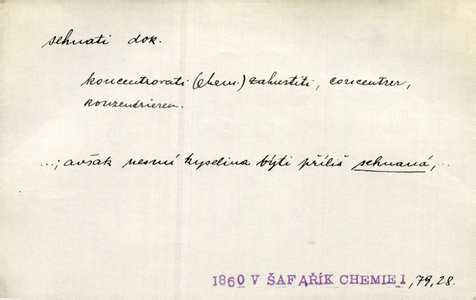 sehnati dok.
koncentrovati (chem.) zahustiti, concentrer,
konzentrieren.
...; avšak nesmí kyselina býti příliš sehnaná,...
1860 V ŠAFAŘÍK CHEMIE I, 79, 28.